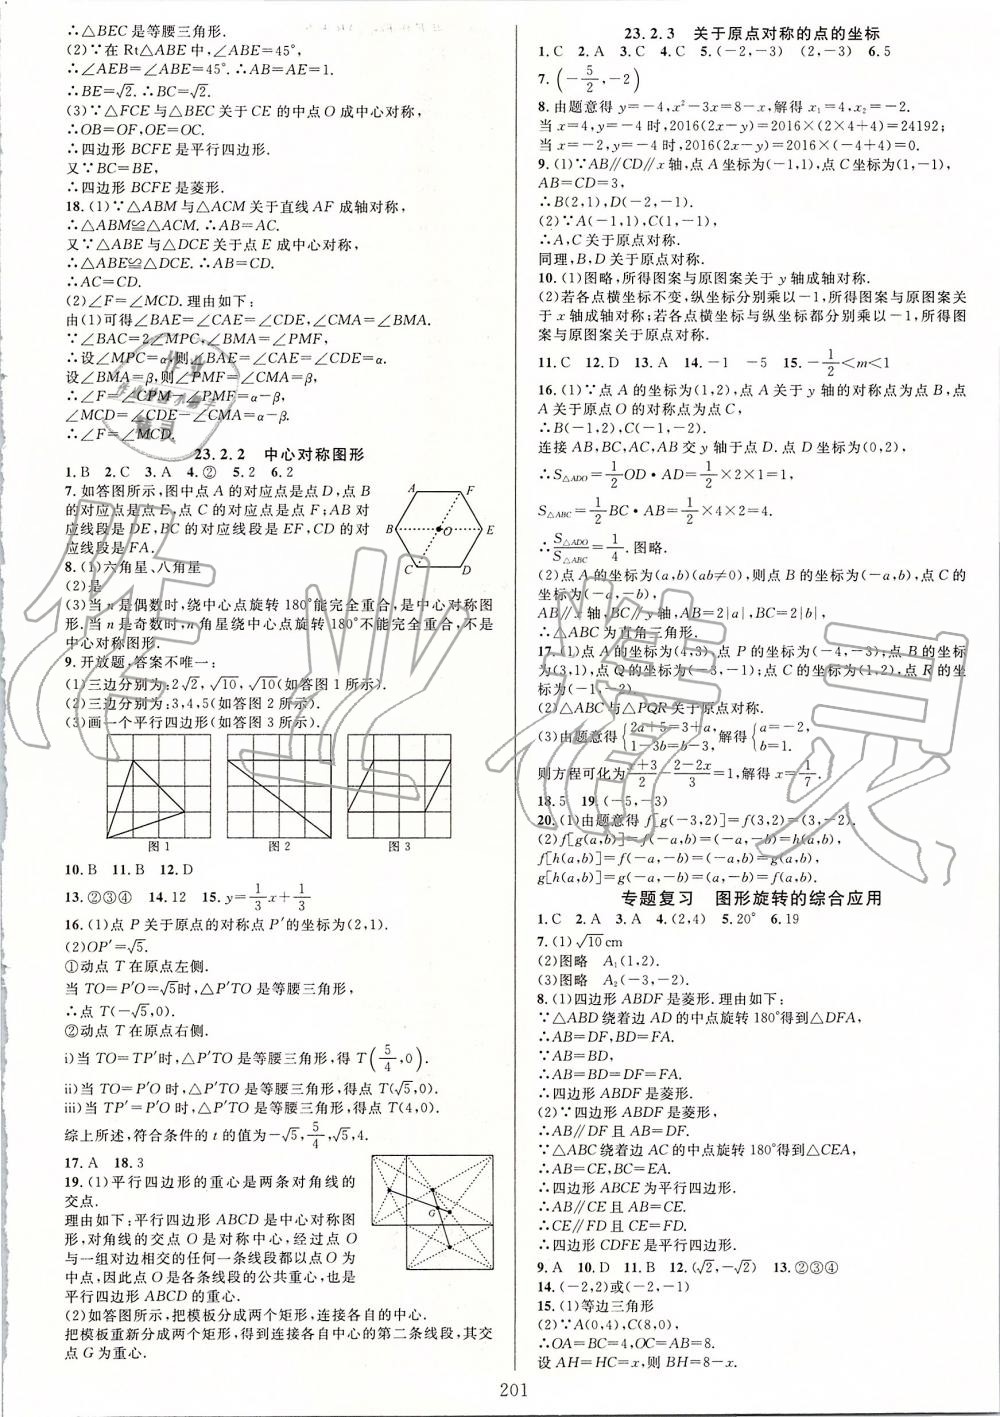 ∴△BEC是等腰三角形.
(2)∵在Rt△ABE中,∠ABE=45°,
∴∠AEB=∠ABE=45°.∴AB=AE=1.
∴BE=√2.∴BC=√2.
(3)∵△FCE与△BEC关于CE的中点O成中心对称,
∴OB=OF,OE=OC.
∴四边形BCFE是平行四边形.
又∵BC=BE,
∴四边形BCFE是菱形.
18.(1)∵△ABM与△ACM关于直线AF成轴对称,
∴△ABM≌△ACM.∴AB=AC.
又∵△ABE与△DCE关于点E成中心对称,
∴△ABE≌△DCE.∴AB=CD.
∴AC=CD.
(2)∠F=∠MCD.理由如下:
由(1)可得∠BAE=∠CAE=∠CDE,∠CMA=∠BMA.
∵∠BAC=2∠MPC,∠BMA=∠PMF,
∴设∠MPC=α,则∠BAE=∠CAE=∠CDE=α.
设∠BMA=β,则∠PMF=∠CMA=β.
∴∠F=∠CPM-∠PMF=α-β,
∠MCD=∠CDE-∠CMA=α-β.
∴∠F=∠MCD.
23.2.2 中心对称图形
1.B 2.C 3.A 4.② 5.2 6.2
7.如答图所示,图中点A的对应点是点D,点B
的对应点是点E,点C的对应点是点F;AB对
应线段是DE,BC的对应线段是EF,CD的对
应线段是FA.
A F B O E C D
8.(1)六角星、八角星
(2)是
(3)当n是偶数时,绕中心点旋转180°能完全重合,是中心对称图
形.当n是奇数时,n角星绕中心点旋转180°不能完全重合,不是
中心对称图形.
9.开放题,答案不唯一:
(1)三边分别为:2√2,√10,√10(如答图1所示).
(2)三边分别为:3,4,5(如答图2所示).
(3)画一个平行四边形(如答图3所示).
图1 图2 图3
10.B 11.B 12.D
13.②③④ 14.12 15.y=1/3x+1/3
16.(1)点P关于原点的对称点P′的坐标为(2,1).
(2)OP′=√5.
①动点T在原点左侧.
当TO=P′O=√5时,△P′TO是等腰三角形,
∴点T(-√5,0).
②动点T在原点右侧.
i)当TO=TP′时,△P′TO是等腰三角形,得T(5/4,0).
ii)当TO=P′O时,△P′TO是等腰三角形,得点T(√5,0).
iii)当TP′=P′O时,△P′TO是等腰三角形,得点T(4,0).
综上所述,符合条件的t的值为-√5,5/4,√5,4.
17.A 18.3
19.(1)平行四边形的重心是两条对角线的
交点.
理由如下:平行四边形ABCD是中心对称图
形,对角线的交点O是对称中心,经过点O
与一组对边相交的任何一条线段都以点O为
中点,因此点O是各条线段的公共重心,也是
平行四边形ABCD的重心.
G
(2)如答图所示,把模板分成两个矩形,连接各自的中心.
把模板重新分成两个矩形,得到连接各自中心的第二条线段,其交
点G为重心.
23.2.3 关于原点对称的点的坐标
1.C 2.A 3.C 4.C 5.(-2,-3) (2,-3) 6.5
7.(-5/2,-2)
8.由题意得y=-4,x²-3x=8-x,解得x₁=4,x₂=-2.
当x=4,y=-4时,2016(2x-y)=2016×(2×4+4)=24192;
当x=-2,y=-4时,2016(2x-y)=2016×(-4+4)=0.
9.(1)∵AB∥CD∥x轴,点A坐标为(-1,1),点C坐标为(1,-1),
AB=CD=3,
∴B(2,1),D(-2,-1).
(2)∵A(-1,1),C(1,-1),
∴A,C关于原点对称.
同理,B,D关于原点对称.
10.(1)图略,所得图案与原图案关于y轴成轴对称.
(2)若各点横坐标不变,纵坐标分别乘以-1,所得图案与原图案关
于x轴成轴对称;若各点横坐标与纵坐标都分别乘以-1,所得图
案与原图案关于原点对称.
11.C 12.D 13.A 14.-1 -5 15.-1/2<m<1
16.(1)∵点A的坐标为(1,2),点A关于y轴的对称点为点B,点
A关于原点O的对称点为点C,
∴B(-1,2),C(-1,-2).
连接AB,BC,AC,AB交y轴于点D.点D坐标为(0,2),
∴S△ADO=1/2OD·AD=1/2×2×1=1,
S△ABC=1/2BC·AB=1/2×4×2=4.
∴S△ADO/S△ABC=1/4.图略.
(2)点A的坐标为(a,b)(ab≠0),则点B的坐标为(-a,b),点C的
坐标为(-a,-b),
AB∥x轴,BC∥y轴,AB=2|a|,BC=2|b|,
∴△ABC为直角三角形.
17.(1)点A的坐标为(4,3),点P的坐标为(-4,-3);点B的坐标
为(3,1),点Q的坐标为(-3,-1);点C的坐标为(1,2),点R的坐
标为(-1,-2).
(2)△ABC与△PQR关于原点对称.
(3)由题意得{2a+5=3+a, 1-3b=b-3,解得{a=-2, b=1.
则方程可化为x+3/2-2-2x/3=1,解得x=1/7.
18.5 19.(-5,-3)
20.(1)由题意得f[g(-3,2)]=f(3,2)=(3,-2).
(2)f[g(a,b)]=f(-a,b)=(-a,-b)=h(a,b),
f[h(a,b)]=f(-a,-b)=(-a,b)=g(a,b),
g[h(a,b)]=g(-a,-b)=(a,-b)=f(a,b).
专题复习 图形旋转的综合应用
1.C 2.A 3.A 4.(2,4) 5.20° 6.19
7.(1)√10cm
(2)图略 A₁(1,2).
(3)图略 A₂(-3,-2).
8.(1)四边形ABDF是菱形.理由如下:
∵△ABD绕着边AD的中点旋转180°得到△DFA,
∴AB=DF,BD=FA.
∵AB=BD,
∴AB=BD=DF=FA.
∴四边形ABDF是菱形.
(2)∵四边形ABDF是菱形,
∴AB∥DF且AB=DF.
∵△ABC绕着边AC的中点旋转180°得到△CEA,
∴AB=CE,BC=EA.
∴四边形ABCE为平行四边形.
∴AB∥CE且AB=CE.
∴CE∥FD且CE=FD.
∴四边形CDFE是平行四边形.
9.A 10.D 11.B 12.(√2,-√2) 13.②③④
14.(-2,2)或(-2,-1)
15.(1)等边三角形
(2)∵A(0,4),C(8,0),
∴OA=BC=4,OC=AB=8.
设AH=HC=x,则BH=8-x.
201
作业精灵